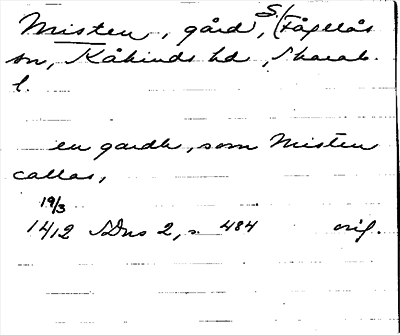 Misten, gård, S. (Fågelås
sn, Kåkinds hd, Skarab.
l.
en gardh, som Misten
callas,
19/3
1412 SDns 2, s. 484 orig.